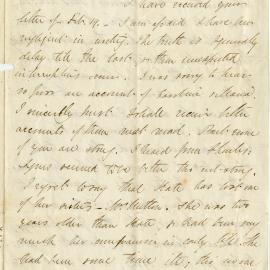 I have received your
letter of Feb. 19. I am afraid I have been
negligent in writing. The truth is I generally
delay till the last & then unexpected
interruptions ensue. I was sorry to hear
so poor an account of
I sincerely trust I shall receive better
accounts of them next mail. Still none
of you are strong. I heard from Stanley.
Agnes seemed to be better this
I regret to say that Kate has lost one
of her sisters - Mrs She was two
years older than Kate, & had been very
much her companion in early life. She
had been some time ill, this